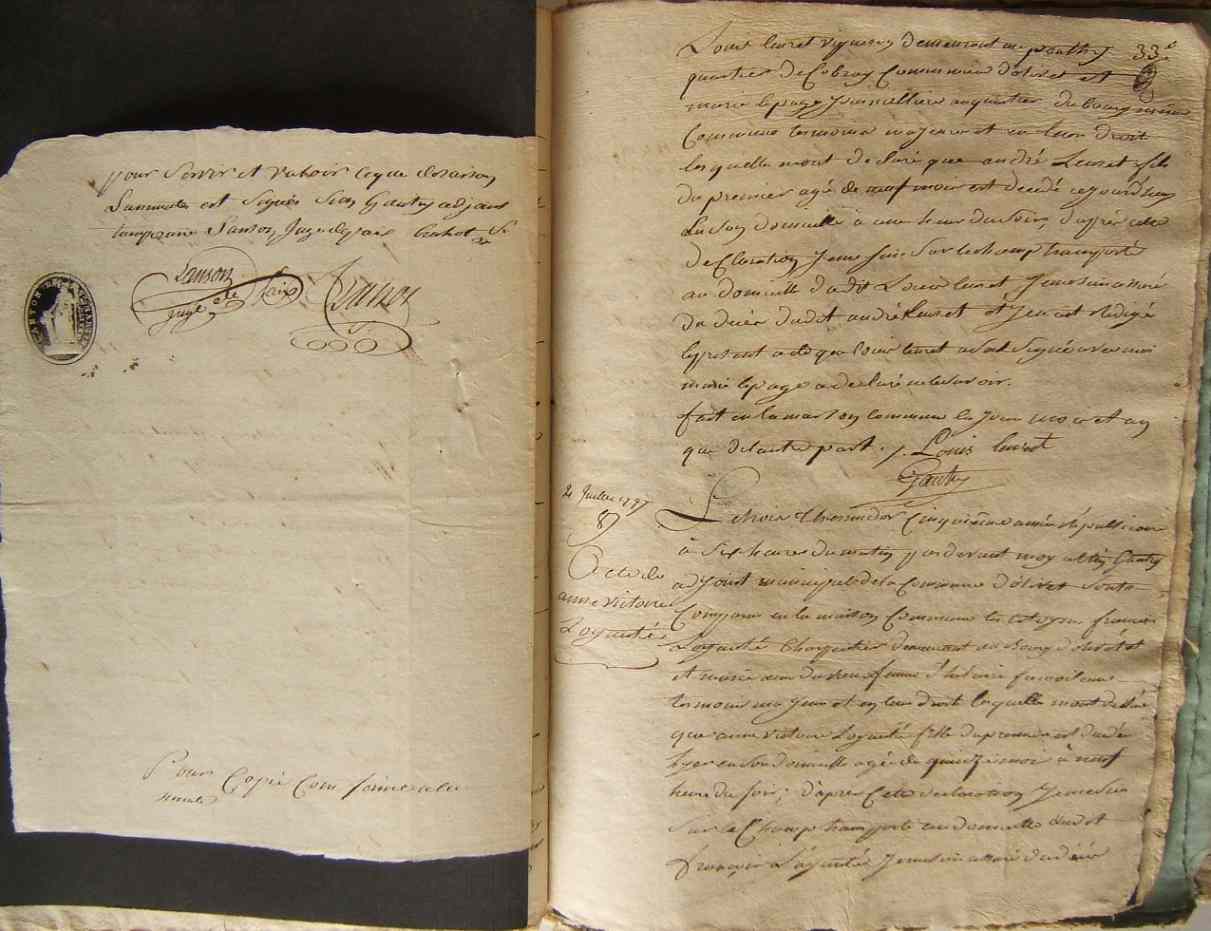 pour servir et valoir ce que de raison
Lanson
juge de Paix
Lanson
Pour Copie Conforme
33e
Louis luret vigneron demeurant au
quartier de Cobray Commune d'olivet et
marie lepage jounalliere au quartier du bourg meme
Commune temoins majeurs et en leur droit
lesquelle mont declaré que andré Leuret fils
du premier agé de neuf mois est decedé cejourdhuy
en son domicille à une heur du soir, d'après cette
declaration je me suis sur lechamp transporté
au domicille dudit Louis luret je me suis assuré
du décès dudit andré luret et j'en ait rédigé
le present acte que Louis luret a signé avec moi
marie lepage a declaré ne le savoir.
fait en la maison commune le jour mois et an
que delautre part. Louis luret
Gautry
21 Juillet 1797
8
Acte de
anne victoire
Loyauté
Le trois thermidor cinquieme année républicaine
à six heures du matin par devant moy Gautry
adjoint municipal de la Commune d'olivet
Comparu en la maison Commune le citoyen francois
Loyauté Charpentier demeurant au bourg d'olivet
et marie femme d'hilaire
temoins majeurs et en leur droit lesquelle mont declaré
que anne victoire Loyauté fille du premier est decedé
hyer en son domicille agée de quinze mois à neuf
heure du soir; d'après cete declaration je me suis
sur le Champ transporté au domicille dudit
françois Loyauté je me suis assuré du décés